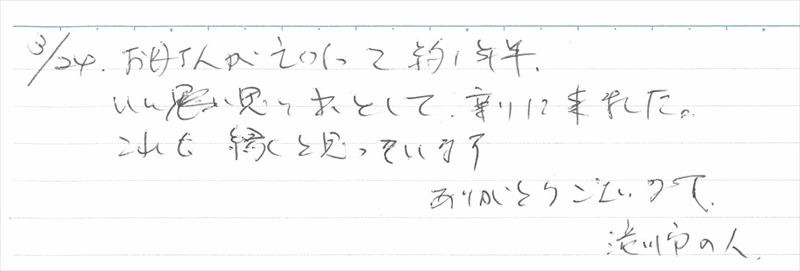 3/24. お母さんが
約1年半、
いい思い出として、乗りに来ました。
これも縁と思っています
ありがとうございます。
滝川市の人